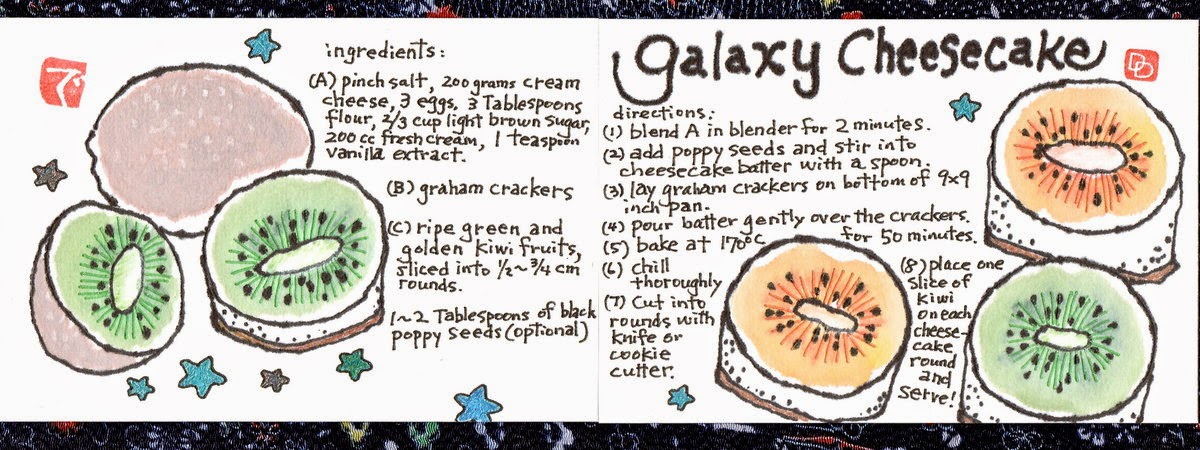 ingredients:
(A) pinch salt, 200 grams cream
cheese, 3 eggs, 3 Tablespoons
flour, 2/3 cup light brown sugar,
200 cc fresh cream, 1 teaspoon
vanilla extract.
(B) graham crackers
(C) ripe green and
golden kiwi fruits,
sliced into 1/2~3/4 cm
rounds.
1~2 Tablespoons of black
poppy seeds (optional)
galaxy Cheesecake
DD
directions:
(1) blend A in blender for 2 minutes.
(2) add poppy seeds and stir into
cheesecake batter with a spoon.
(3) lay graham crackers on bottom of 9x9
inch pan.
(4) pour batter gently over the crackers.
(5) bake at 170°C for 50 minutes.
(6) chill
thoroughly
(7) Cut into
rounds with
knife or
cookie
cutter.
(8) place one
slice of
kiwi
on each
cheese-
cake
round
and
serve!